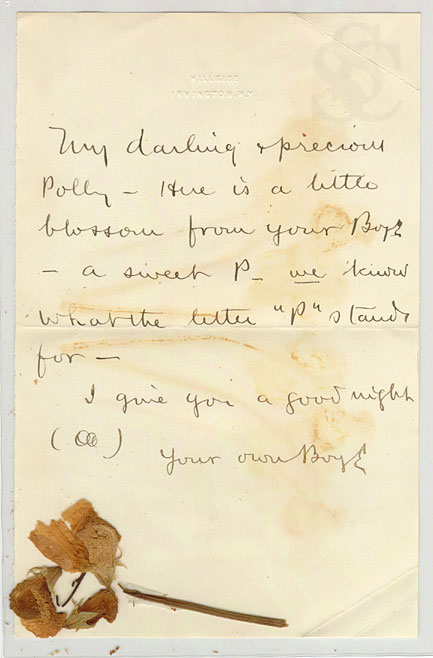 HILLSIDE
IRVINGTON, N.Y.
My darling & precious
Polly – Here is a little
blossom from your Boy
– a sweet P – we know
what the letter "P" stands
for –
I give you a good night
Your own Boy